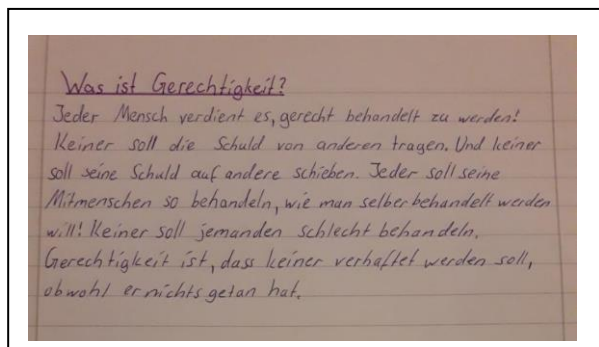 Was ist Gerechtigkeit?
Jeder Mensch verdient es, gerecht behandelt zu werden!
Keiner soll die Schuld von anderen tragen. Und keiner
soll seine Schuld auf andere schieben. Jeder soll seine
Mitmenschen so behandeln, wie man selber behandelt werden
will! Keiner soll jemanden schlecht behandeln.
Gerechtigkeit ist, dass keiner verhaftet werden soll,
obwohl er nichts getan hat.